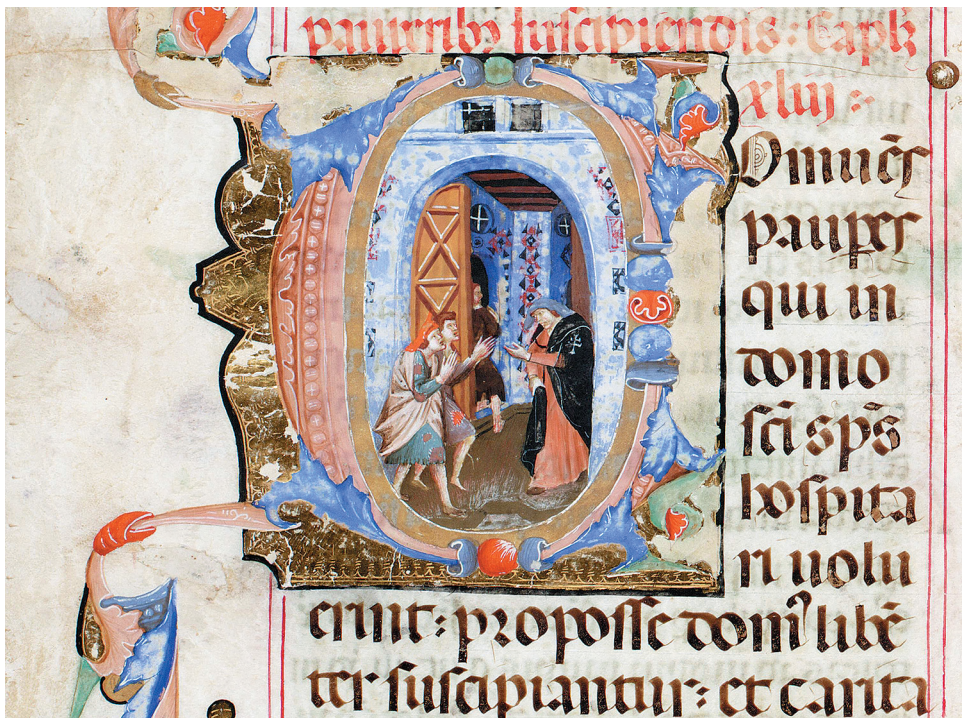 pauperibꝫ suscipiendis : Capłꝫ
Omnēs
paupes
qui in
domo
sci sps
hospita
ri uolu
erint : pro posse domꝰ libē
ter suscipiantur : et carita